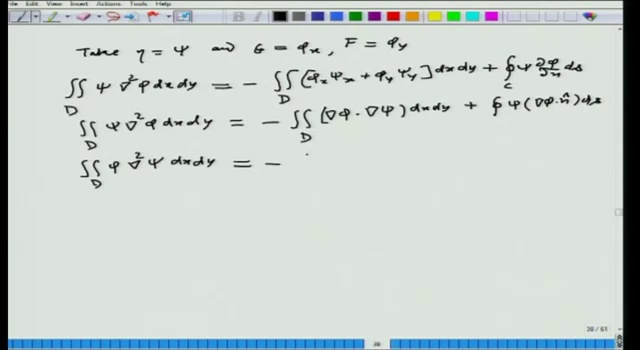 File Edit View Insert Actions Tools Help
Take η = Ψ and G = φₓ, F = φ_y
∬_D Ψ ∇²φ dxdy = − ∬_D [φₓΨₓ + φ_yΨ_y] dxdy + ∮_C Ψ ∂φ/∂n ds
∬_D Ψ ∇²φ dxdy = − ∬_D (∇φ · ∇Ψ) dxdy + ∮ Ψ (∇φ · n̂) ds
∬_D φ ∇²Ψ dxdy = −
38/61
38